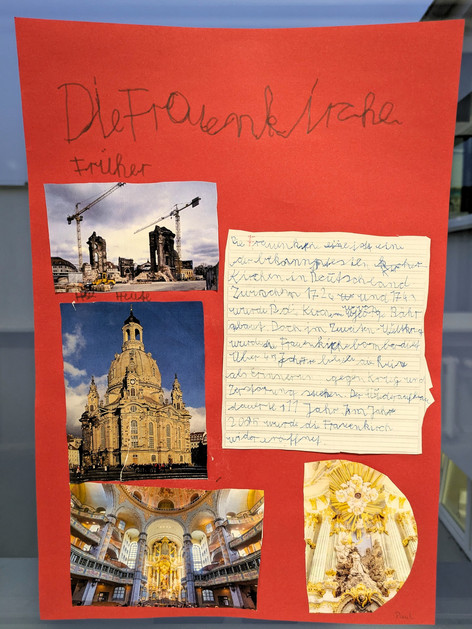 Die Frauenkirche
Früher
Heute
Die Frauenkirche ist eine
der bekanntesten
Kirchen in Deutschland
Zwischen 1726 und 1743
wurde von Bähr
gebaut. Doch im Zweiten Weltkrieg
wurde die Frauenkirche bombardiert
Über 40 Jahre blieb die Ruine
als Erinnerung gegen Krieg und
Zerstörung stehen. Der Wiederaufbau
dauerte 11 Jahre. Im Jahre
2005 wurde die Frauenkirch
wider eröffnet